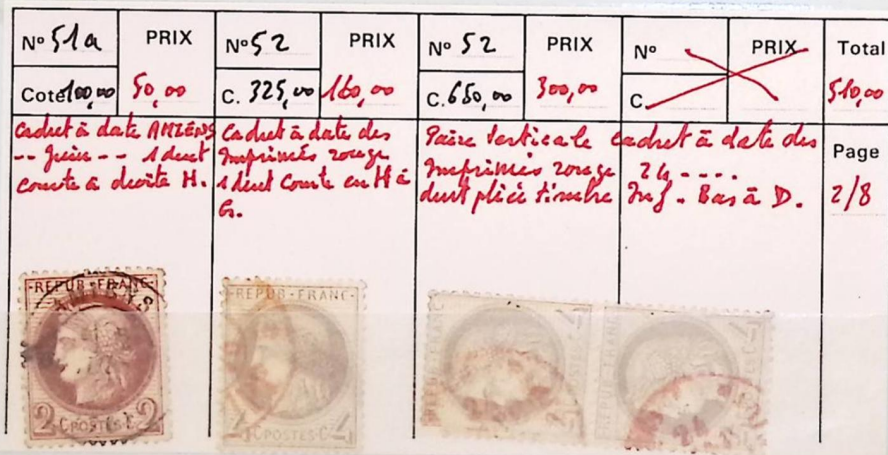 N° 51a PRIX N° 52 PRIX N° 52 PRIX N° PRIX Total
Cote 100,00 50,00 C. 325,00 160,00 C. 650,00 300,00 C. 510,00
Cachet à date AMIENS
-- Juin -- 1 dent
courte à droite H.
Cachet à date des
Imprimés rouge
1 dent Courte en H à
G.
Paire verticale cachet à date des
Imprimés rouge 24 ----.
dent pliée timbre Inf. Bas à D.
Page
2/8
REPUB·FRANC·
2 C POSTES C 2
REPUB·FRANC·
4 C POSTES·C 4
REPUB·FRANC
REPUB·FRANC
24